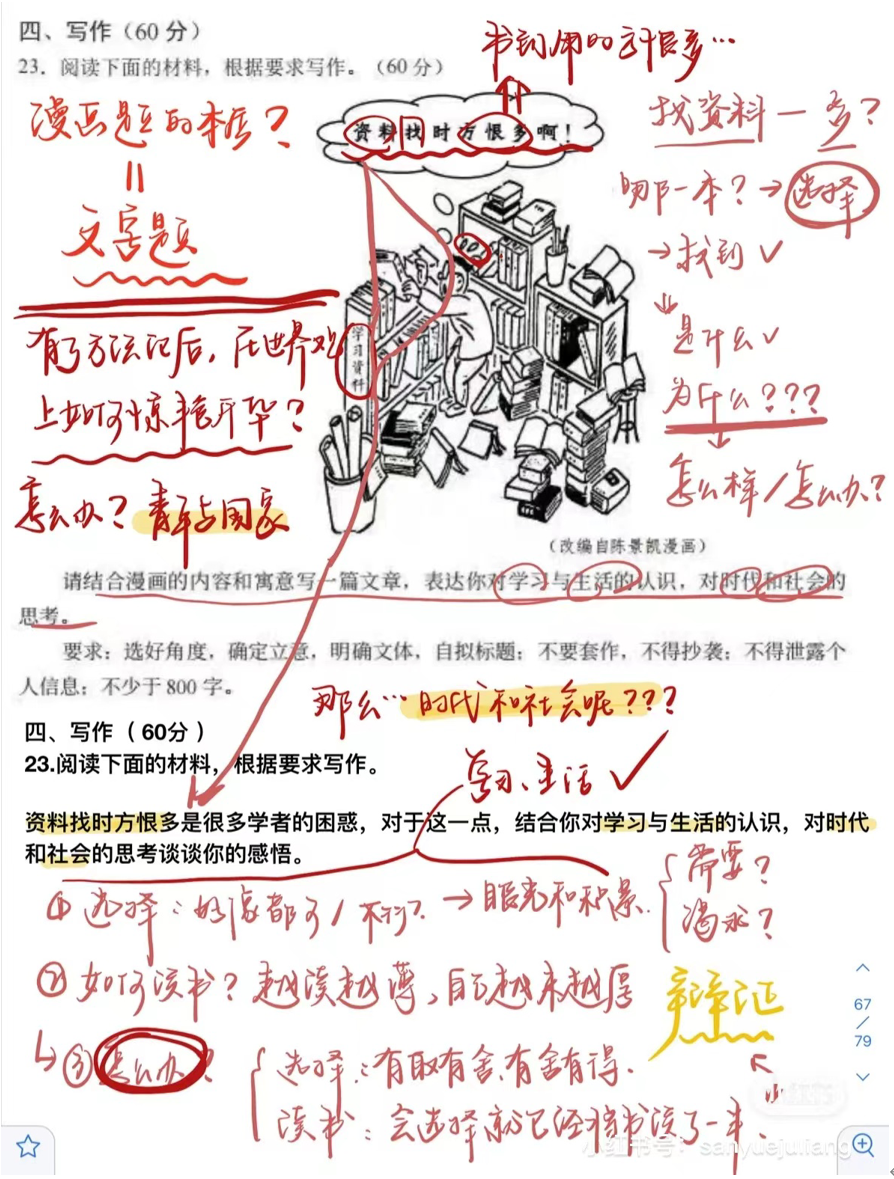 四、写作（60 分）
23．阅读下面的材料，根据要求写作。（60 分）
书到用时方恨多…
漫画题的本质？
=
文字题
资料找时方恨多啊！
找资料一多？
哪一本？→选择
→找到✓
是什么✓
为什么？？？
怎么样/怎么办？
学习资料
有了方法论后，在世界观
上如何惊艳升华？
怎么办？青年与国家
（改编自陈景凯漫画）
请结合漫画的内容和寓意写一篇文章，表达你对学习与生活的认识，对时代和社会的
思考。
要求：选好角度，确定立意，明确文体，自拟标题；不要套作，不得抄袭；不得泄露个
人信息；不少于 800 字。
那么…时代和社会呢？？？
四、写作（ 60分 ）
23.阅读下面的材料，根据要求写作。
学习、生活✓
资料找时方恨多是很多学者的困惑，对于这一点，结合你对学习与生活的认识，对时代
和社会的思考谈谈你的感悟。
①选择：好像都可/不行？→眼光和积累
需要？
渴求？
②如何读书？越读越薄，自己越来越厚
辩证
③怎么办？
选择：有取有舍，有舍有得.
读书：会选择就已经将书读了一半.
67
/
79
小红书
小红书号：sanyuejuliang